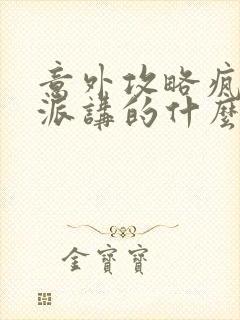 意外攻略疯
派講的什麼
金寶寶